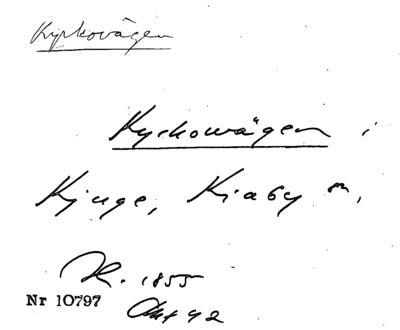 Kyrkovägen
Kyrkowägen i
Kjuge, Kiaby sn,
R. 1855
Nr 10797
Akt 42